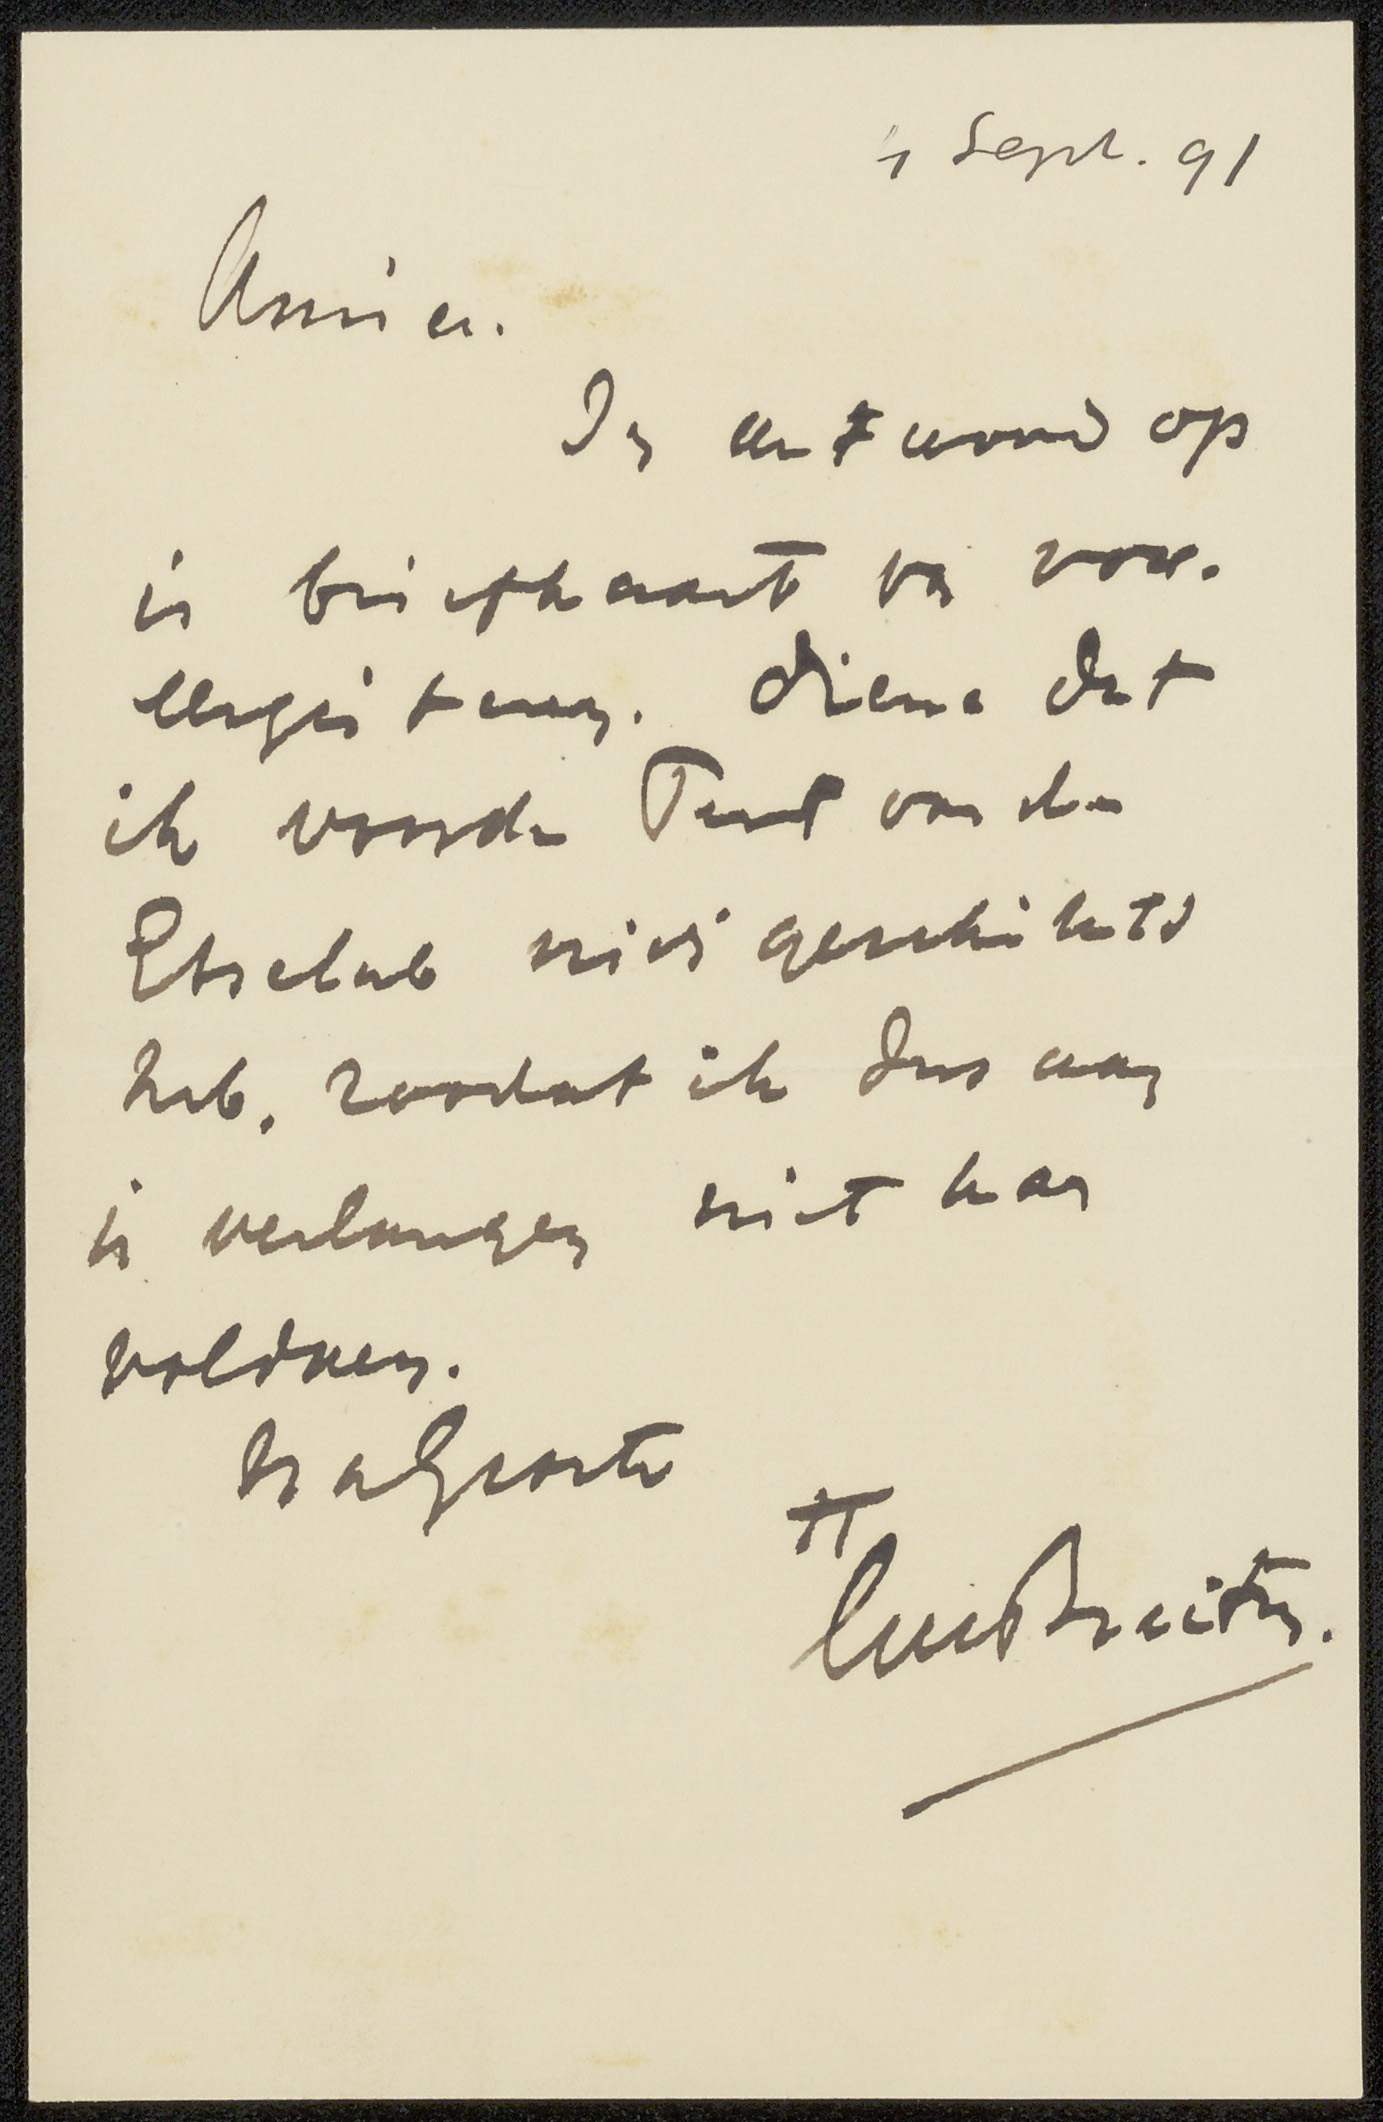 Sept. 91
Amice.
In antwoord op
je briefkaart van voor-
eergisteren. diene dat
ik voor de Tent van de
Etsclub niets geschikts
heb, zoodat ik dus aan
je verlangen niet kan
voldoen.
na groete
tt
Breitner.